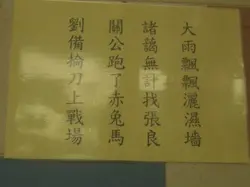 大雨飄飄灑濕墻
諸謫無計找張良
關公跑了赤兔馬
劉備掄刀上戰場